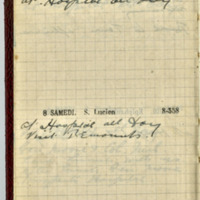 at Hospital all Day
8 SAMEDI. S. Lucien 8-358
at Hospital all Day
Visit Remounts